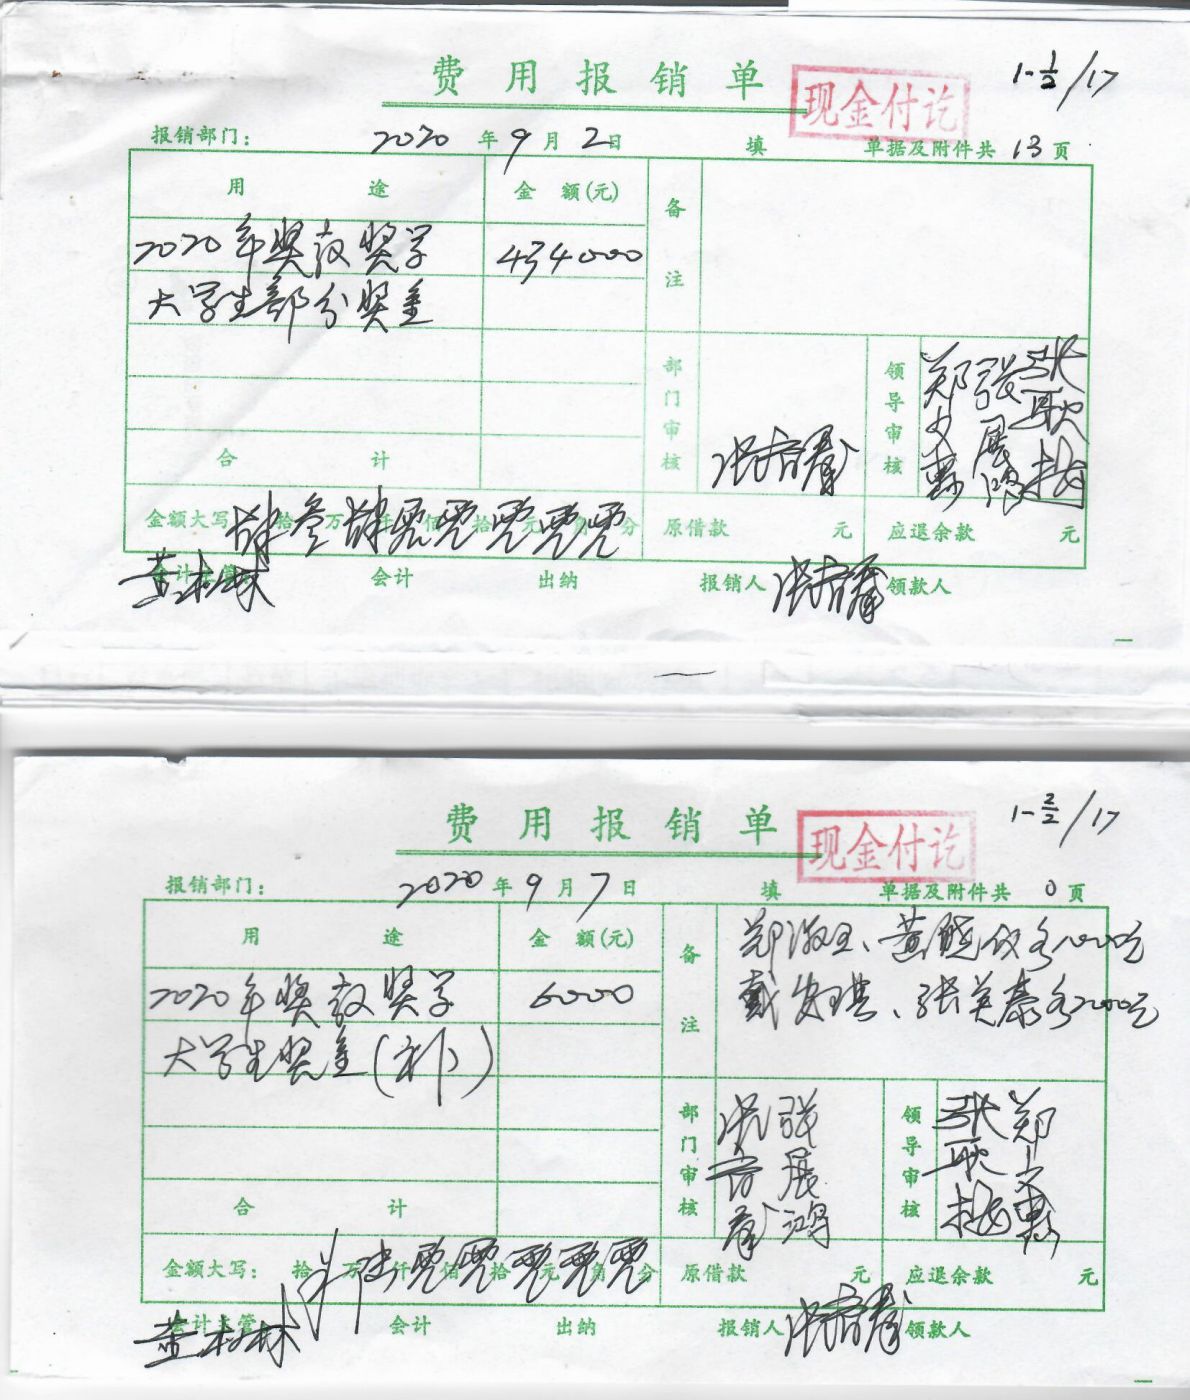 费用报销单
现金付讫
1-1/2/17
报销部门: 2020年9月2日 填 单据及附件共13页
用途 金额(元) 备注
2020年奖教奖学 434000
大学生部分奖金
部门审核 领导审核
合计
金额大写 肆拾叁万肆仟零佰零拾零元零角零分 原借款 元 应退余款 元
会计主管 会计 出纳 报销人 领款人
费用报销单
现金付讫
1-2/2/17
报销部门: 2020年9月7日 填 单据及附件共0页
用途 金额(元) 备注
2020年奖教奖学 6000
大学生奖金(补)
部门审核 张展鸿 领导审核
合计
金额大写: 拾万陆仟零佰零拾零元零角零分 原借款 元 应退余款 元
会计主管 会计 出纳 报销人 领款人